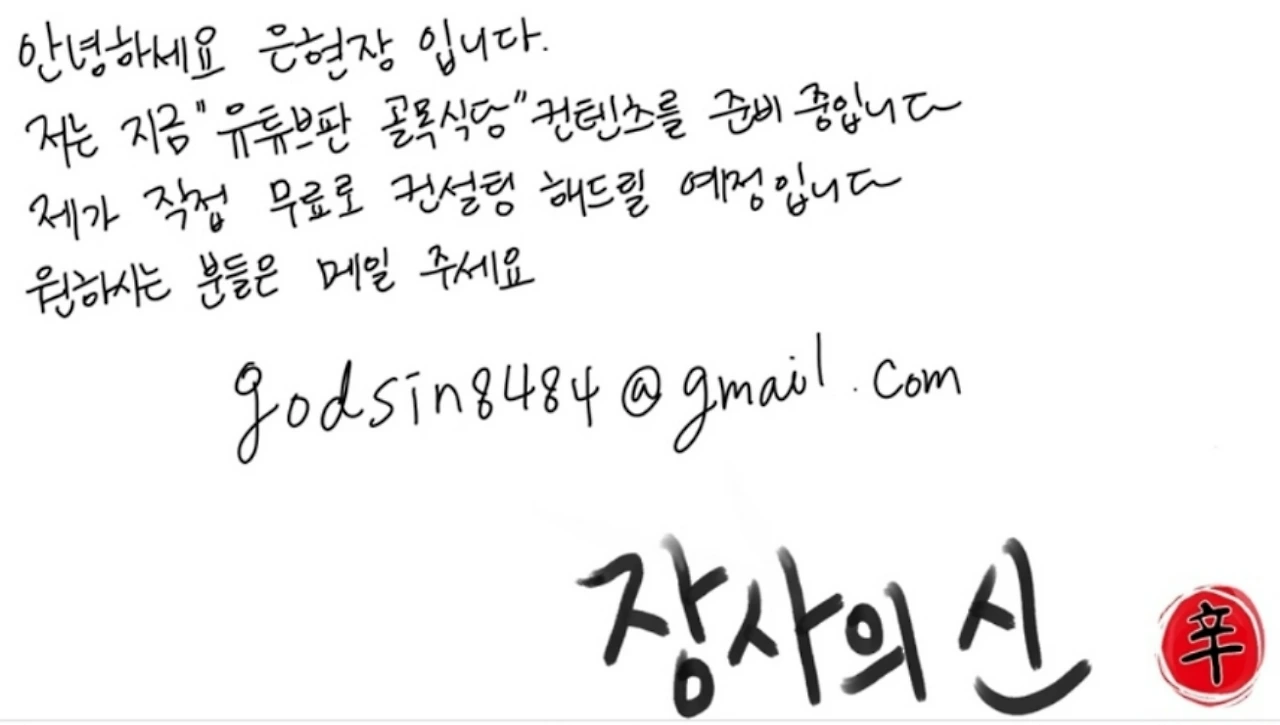 안녕하세요 은현장 입니다.
저는 지금 "유튜브판 골목식당" 컨텐츠를 준비 중입니다
제가 직접 무료로 컨설팅 해드릴 예정입니다
원하시는 분들은 메일 주세요
godsin8484@gmail.com
장사의 신
辛